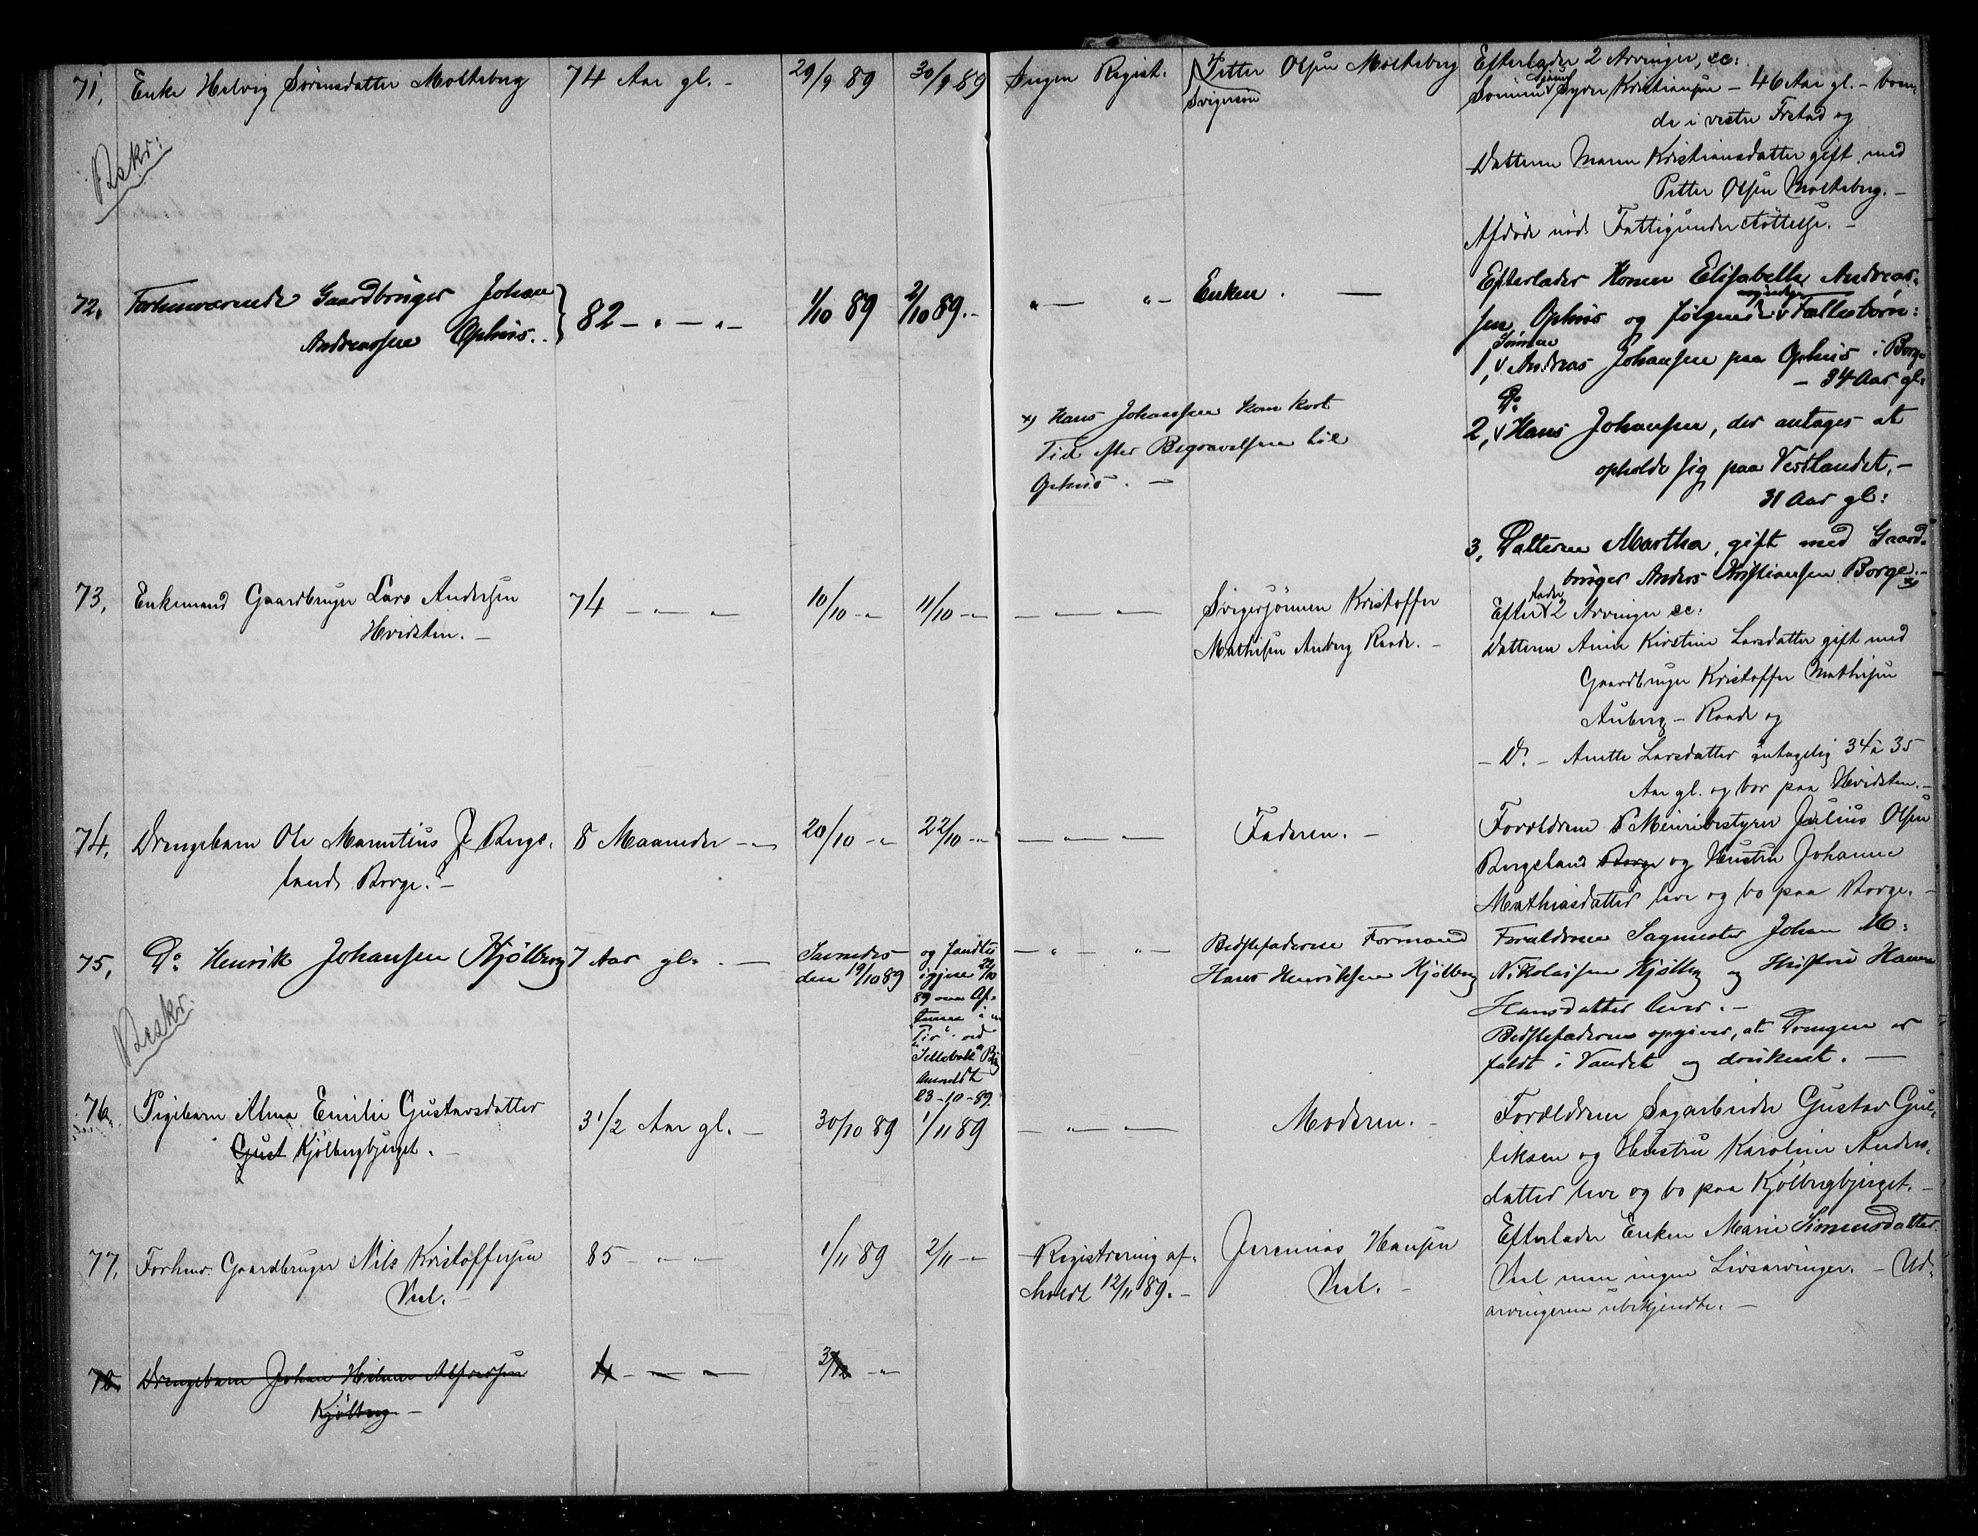 71, Enke Helvig Sörensdatter Molteberg 74 Aar gl. - 29/9 89 30/9 89 Ingen Regist. Petter Olsen Molteberg
Svigersøn
Efterlader 2 Arvinger, sc:
Sønnen Syver Kristiansen - 46 Aar gl. - boen-
de i vestre Frstad og
Datteren Maren Kristiansdatter gift med
Petter Olsen Molteberg. -
Afdøde nød Fattigunderstøttelse. -
Beskr:
72. Forhenværende Gaardbruger Johan
Andreassen Ophus. 82 - " - " - 1/10 89 2/10 89. - " - " - Enken. -
Efterlader Konen Elisabeth Andreas-
sen Ophus og følgende Fællesbørn:
Sønnen
1, Andreas Johansen paa Ophus i Borge
- 34 Aar gl.
Do
2, Hans Johansen, der antages at
opholde sig paa Vestlandet, -
31 Aar gl:
3, Datteren Martha, gift med Gaard-
bruger Anders Kristiansen Borge. -
x) Hans Johanssen kom kort
Tid efter Begravelsen til
Ophus. -
73, Enkemand Gaardbruger Lars Andersen
Hvidsten. - 74 - " - " 10/10 - " 11/10 - " - " - Svigersønnen Kristoffer
Mathisen Auberg Raade. -
Efterlader 2 Arvinger sc:
Datteren Anne Kirstine Larsdatter gift med
Gaardbruger Kristoffer Mathisen
Auberg - Raade og
- Do. - Anette Larsdatter antagelig 34 a 35
Aar gl. og bor paa Hvidsten. -
74, Drengebarn Ole Marentius J. Bergs-
land Borge. - 8 Maaneder - " 20/10 - " 22/10 - " - " - Faderen. -
Forældrene Meieribestyrer Julius Olsen
Bergsland Borge og Hustru Johanne
Mathiasdatter leve og bo paa Borge. -
75, Do Henrik Johansen Kjølberg 7 Aar gl. - Savnedes
den 19/10 89
og fandtes
igjen 22/10
89
Anmeldt
23-10-89.
- " - " - Bedstefaderen Formand
Hans Henriksen Kjølberg
Forældrene Sagmester Johan M.
Nikolaisen Kjølberg og Hustru Hanna
Hansdatter lever. -
Bedstefaderen opgiver, at Drengen er
faldt i Vandet og druknet. -
Beskr:
76. Pigebarn Alma Emilie Gustavsdatter
Gust Kjølbergbjerget. - 3 1/2 Aar gl. - 30/10 89 1/11 89 - " - Moderen. -
Forældrene Sagarbeider Gustav Gul-
liksen og Hustru Karoline Anders-
datter leve og bo paa Kjølbergbjerget. -
77, Forhenv. Gaardbruger Nils Kristoffersen
Veel. - 85 - " - " 1/11 89 2/11 - " Registrering af-
holdt 12/11 89. - Jeremias Hansen
Veel. -
Efterlader Enken Marie Simensdatter
Veel men ingen Livsarvinger. - Ud-
arvingerne ubekjendte. -
78. Drengebarn Johan Hilmar Alfredsen
Kjølberg - 4 - " - " 3/12 - "